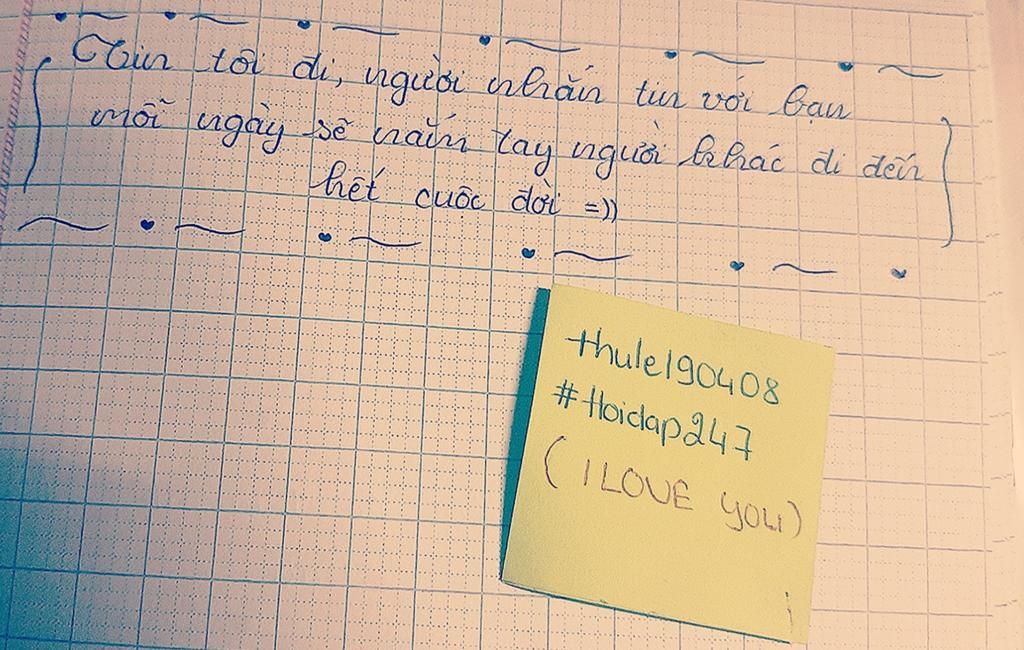 Tin tôi đi, người nhắn tin với bạn
mỗi ngày sẽ nắm tay người khác đi đến
hết cuộc đời =))
thule190408
#Hoidap247
(I LOVE YOU)